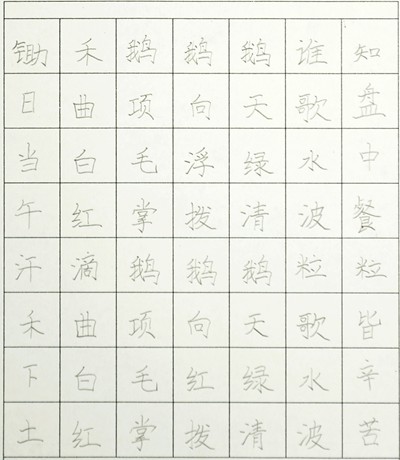 锄禾鹅鹅鹅谁知
日曲项向天歌盘
当白毛浮绿水中
午红掌拨清波餐
汗滴鹅鹅鹅粒粒
禾曲项向天歌皆
下白毛红绿水辛
土红掌拨清波苦